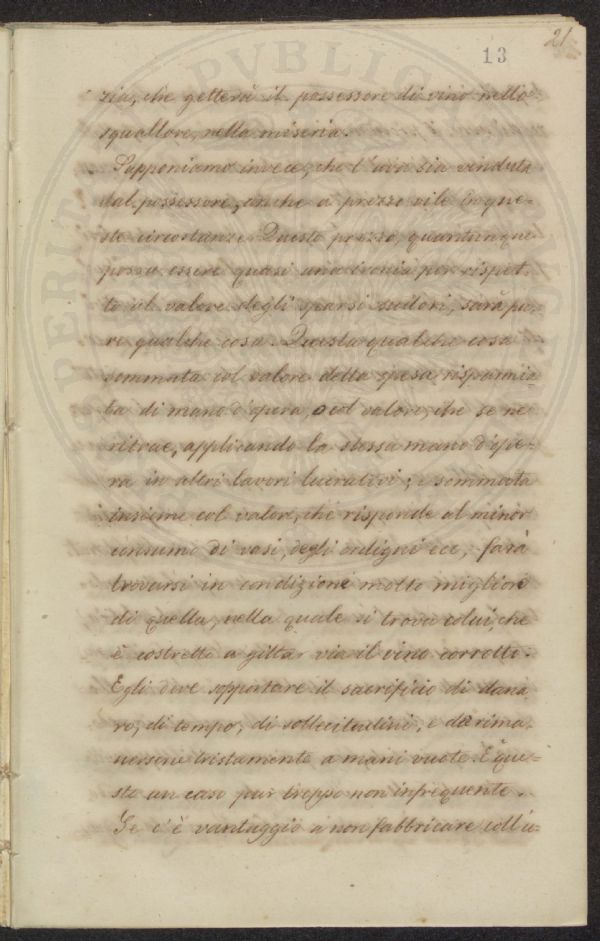 21
13
zia, che getterà il possessore di vino nello
squallore, nella miseria.
Supponiamo invece, che l'uva sia venduta
dal possessore, anche a prezzo vile in que-
ste circostanze. Questo prezzo, quantunque
possa essere quasi una ironia per rispet-
to al valore degli sparsi sudori, sarà pu-
re qualche cosa. Questa qualche cosa
sommata col valore della spesa risparmia-
ta di mano d'opera o col valore, che se ne
ritrae, applicando la stessa mano d'ope-
ra in altri lavori lucrativi; e sommata
insieme col valore, che risponde al minor
consumo di vasi, degli ordigni ecc, farà
trovarsi in condizione molto migliore
di quella, nella quale si trova colui, che
è costretto a gittar via il vino corrotto.
Egli deve sopportare il sacrificio di dana-
ro, di tempo, di sollecitudini, e da rima-
nersene tristamente a mani vuote. È que-
sto un caso pur troppo non infrequente.
Se c'è vantaggio a non fabbricare coll'u-